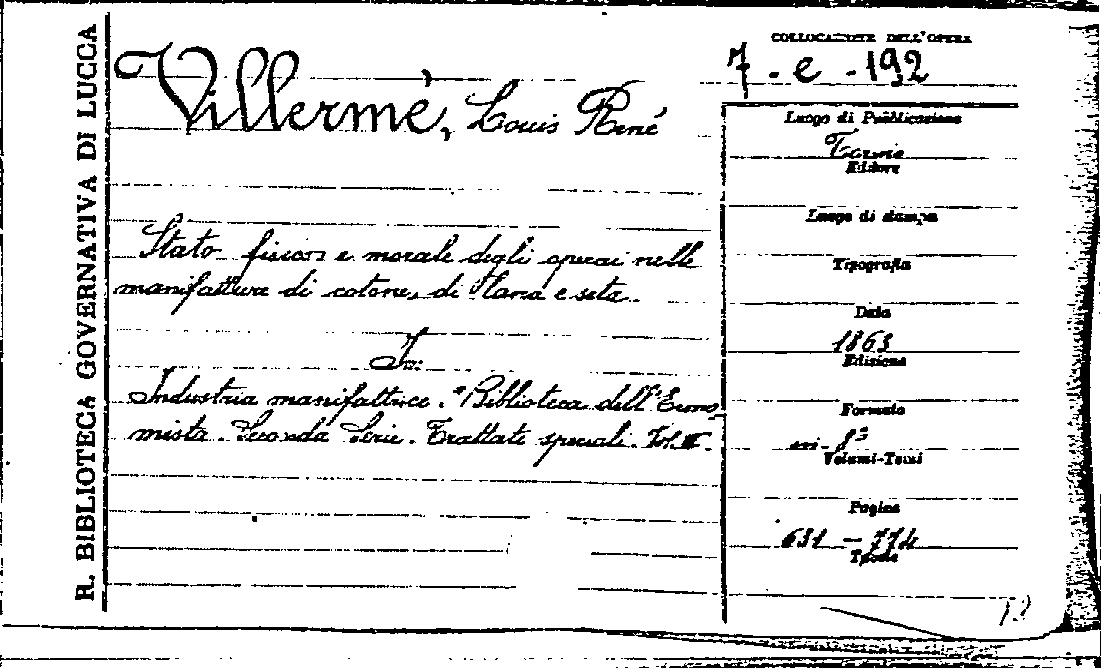 R. BIBLIOTECA GOVERNATIVA DI LUCCA
Villermè, Louis René
Stato fisico e morale degli operai nelle
manifatture di cotone, di lana e seta.
In:
Industria manifattrice. "Biblioteca dell'Econo
mista. Seconda Serie. Trattati speciali. Vol. III.
COLLOCAZIONE DELL'OPERA
7 - e - 192
Luogo di Pubblicazione
Torino
Editore
Luogo di stampa
Tipografia
Data
1863
Edizione
Formato
in-8º
Volumi-Tomi
Pagine
631 - 774
Tavole